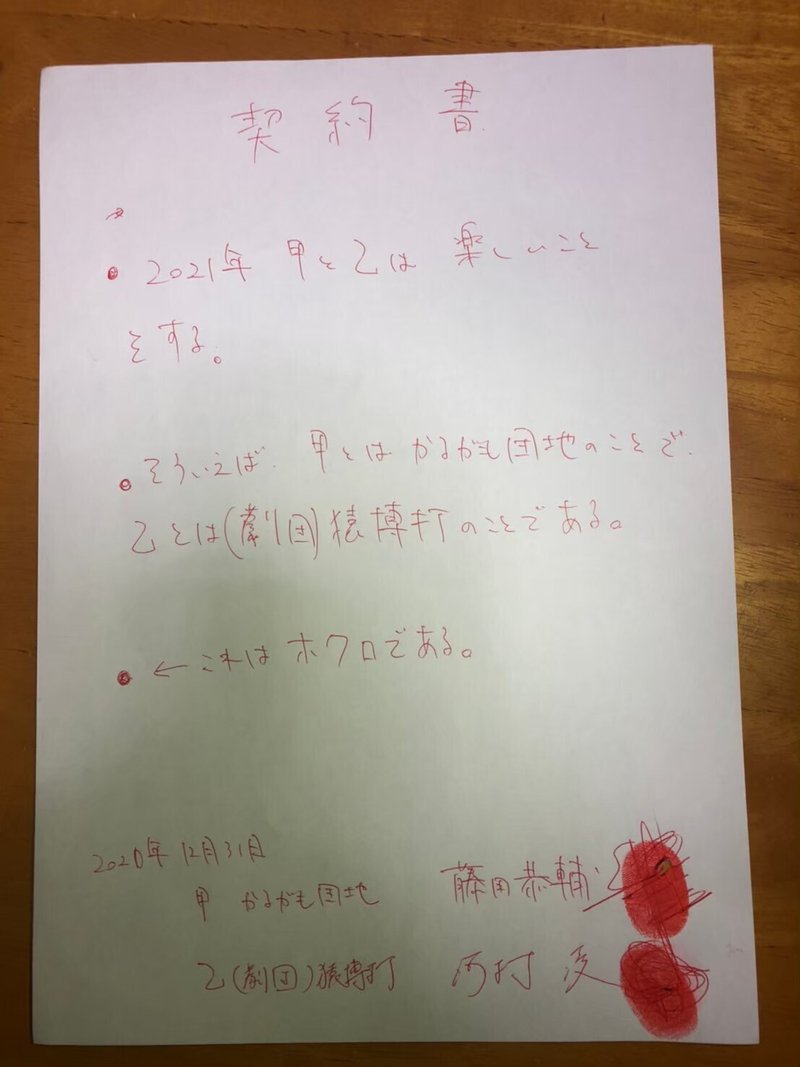 契約書
・2021年 甲と乙は 楽しいこと
をする。
・そういえば、甲とは かるがも団地のことで、
乙とは(劇団)猿博打のことである。
・←これは ホクロである。
2020年 12月31日
甲 かるがも団地 藤田恭輔
乙(劇団)猿博打 河村 凌